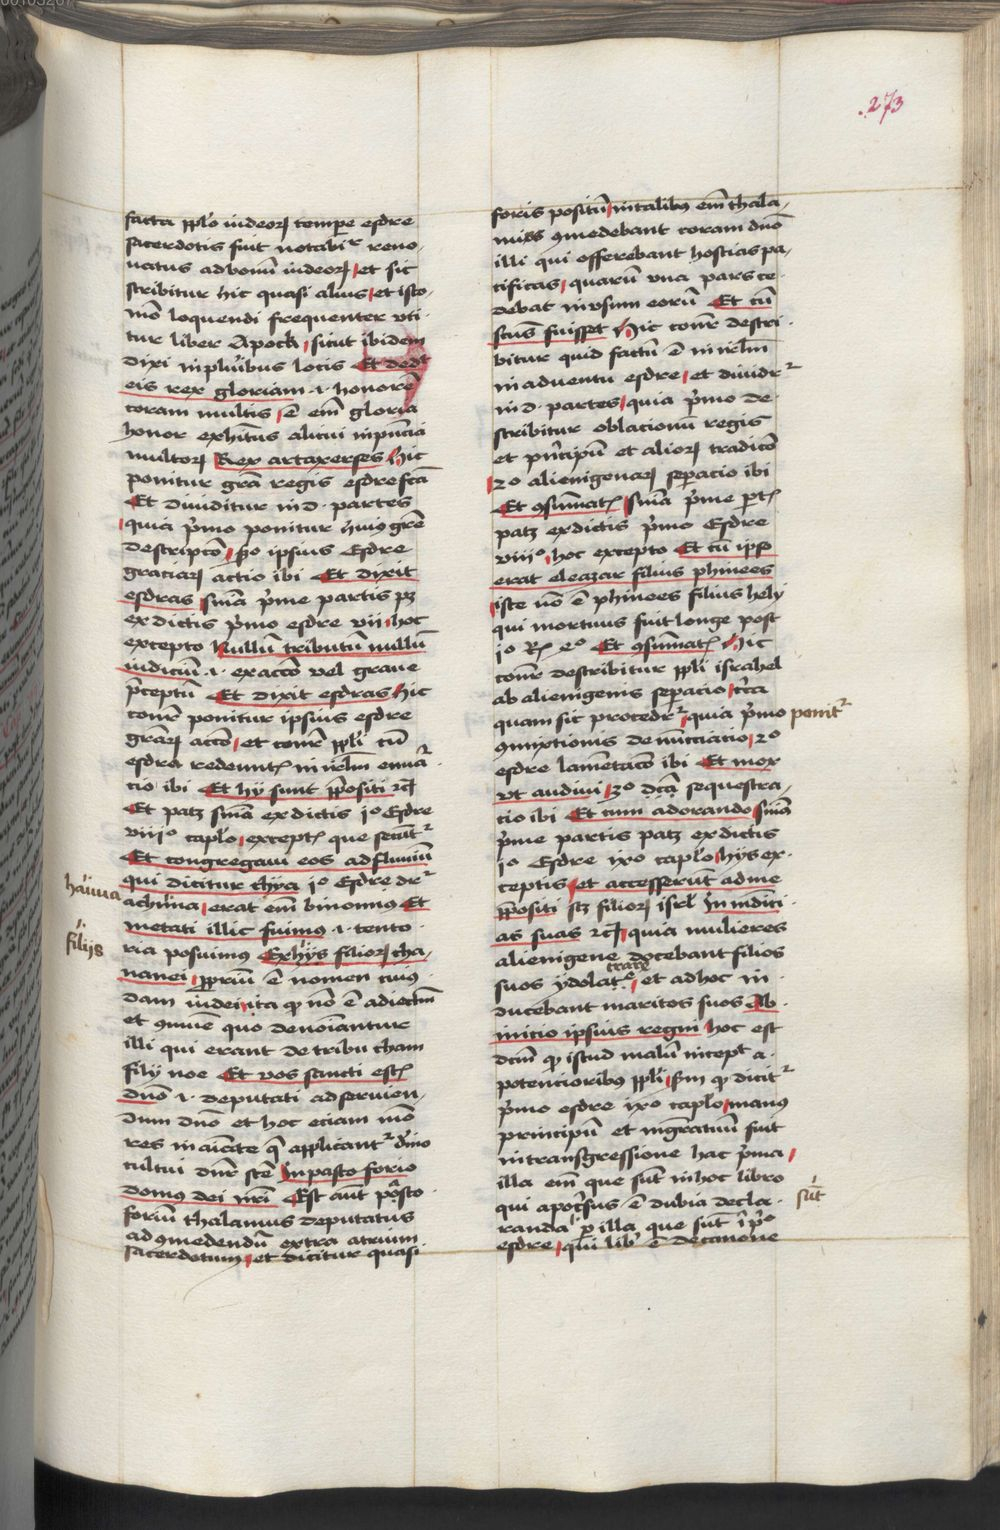 .273
facta pplo iudeorꝝ tempe esdre
sacerdotis fuit notabilr reno-
uatus ad bonū iudeorꝝ et sic
scribitur hic quasi alius et isto-
mō loquendi frequenter vti-
tur liber Apock sicut ibidem
dixi in pluribus locis Et dedit
eis rex gloriam .i. honorē
coram multis ē em gloria
honor exhitus alicui in pūcia
multorꝝ Rex artaxerses Hic
ponitur grā regis esdre fcā
Et diuiditur in d. partes
quia p̄mo ponitur huiꝯ grē
descripcō 2o ipsius Esdre
graciarꝝ actio ibi Et dixit
esdras snīa p̄me partis pꝫ
ex dictis p̄mo esdre vii hoc
excepto Nullū tributū nullū
iudiciū .i. exaccō vel graue
p̄ceptū Et dixit esdras Hic
conr̄ ponitur ipsius esdre
grarꝝ accō et conr̄ ppli cū
esdra redeuntꝭ in irlm enūa-
cio ibi Et hij sunt ppositi ⁊c̄
Et patꝫ snīa ex dictis jo Esdre
viijo caplo exceptꝭ que secūtr
Et congregaui eos ad fluuiū
qui dicitur thya jo Esdre dr
hauua
achiua erat em binomius Et
metati illic fuimus .i. tento-
filijs
ria posuimus Ex hijs filiorꝝ cha-
nanei ppriū ē nomen cuius-
dam iudei ita ꝙ nō ē adiectiuū
et ꝯmune quo denoīantur
illi qui erant de tribu cham
filij noe Et vos sancti estꝭ
dnō .i. deputati ad seruien-
dum dnō et hoc eciam mō
res inaiāte q̄ applicantr diuīo
cultui dnr scē In pastoforio
domus dei nri Est aūt pasto-
foriū thalamus deputatus
ad ꝯmedendū extra atrium
sacerdotum et dicitur quasi
foris positū in talibꝯ em thala-
mis ꝯmedebant coram dnō
illi qui offerebant hostias pa-
cificas quarū vna pars ce-
debat in vsum eorū Et cū
scūs fuisset Hic conr̄ descri-
bitur quid factū ē in irlm
in aduentu esdre et diuidr
in d. partes quia p̄mo de-
scribitur oblacionū regis
et p̄ncipū et aliorꝝ tradicō
2o alienigenarꝝ seperacio ibi
Et ꝯsummatꝭ snīa p̄me ptꝭ
patꝫ ex dictis p̄mo Esdre
viijo hoc excepto Et cū ipso
erat eleazar filius phinees
iste nō ē phinees filius hely
qui mortuus fuit longe post
jo Rꝭ 2o Et ꝯsummatꝭ Hic
conr̄ describitur ppli israhel
ab alienigenis seperacio circa
quam sic procedr quia p̄mo ponitr
ꝯmixtionis denūciacio 2o
esdre lamētacō ibi Et mox
vt audiui 3o dcā sequestra-
cio ibi Et cum adorando snīa
p̄me partis patꝫ ex dictis
jo Esdre ixo caplo hijs ex-
ceptis et accesserūt ad me
ppositi scꝫ filiorꝝ isrl Inmūdici-
as suas ⁊c̄ quia mulieres
alienigene docebant filios
trare
suos ydolatre et ad hoc in-
ducebant maritos suos Ab
inicio ipsius regni hoc est
dcm̄ ꝙ istud malū incept a
potencioribꝯ ppli sm ꝙ dicitr
p̄mo esdre ixo caplo manꝯ
principū et mgratuū fuit
in transgressione hac p̄ma
illa em que sūt in hoc libro
sūt
qui apocrifus ē dubia decla-
randa p illa que sūt ī po
esdre qui lib ē de canone